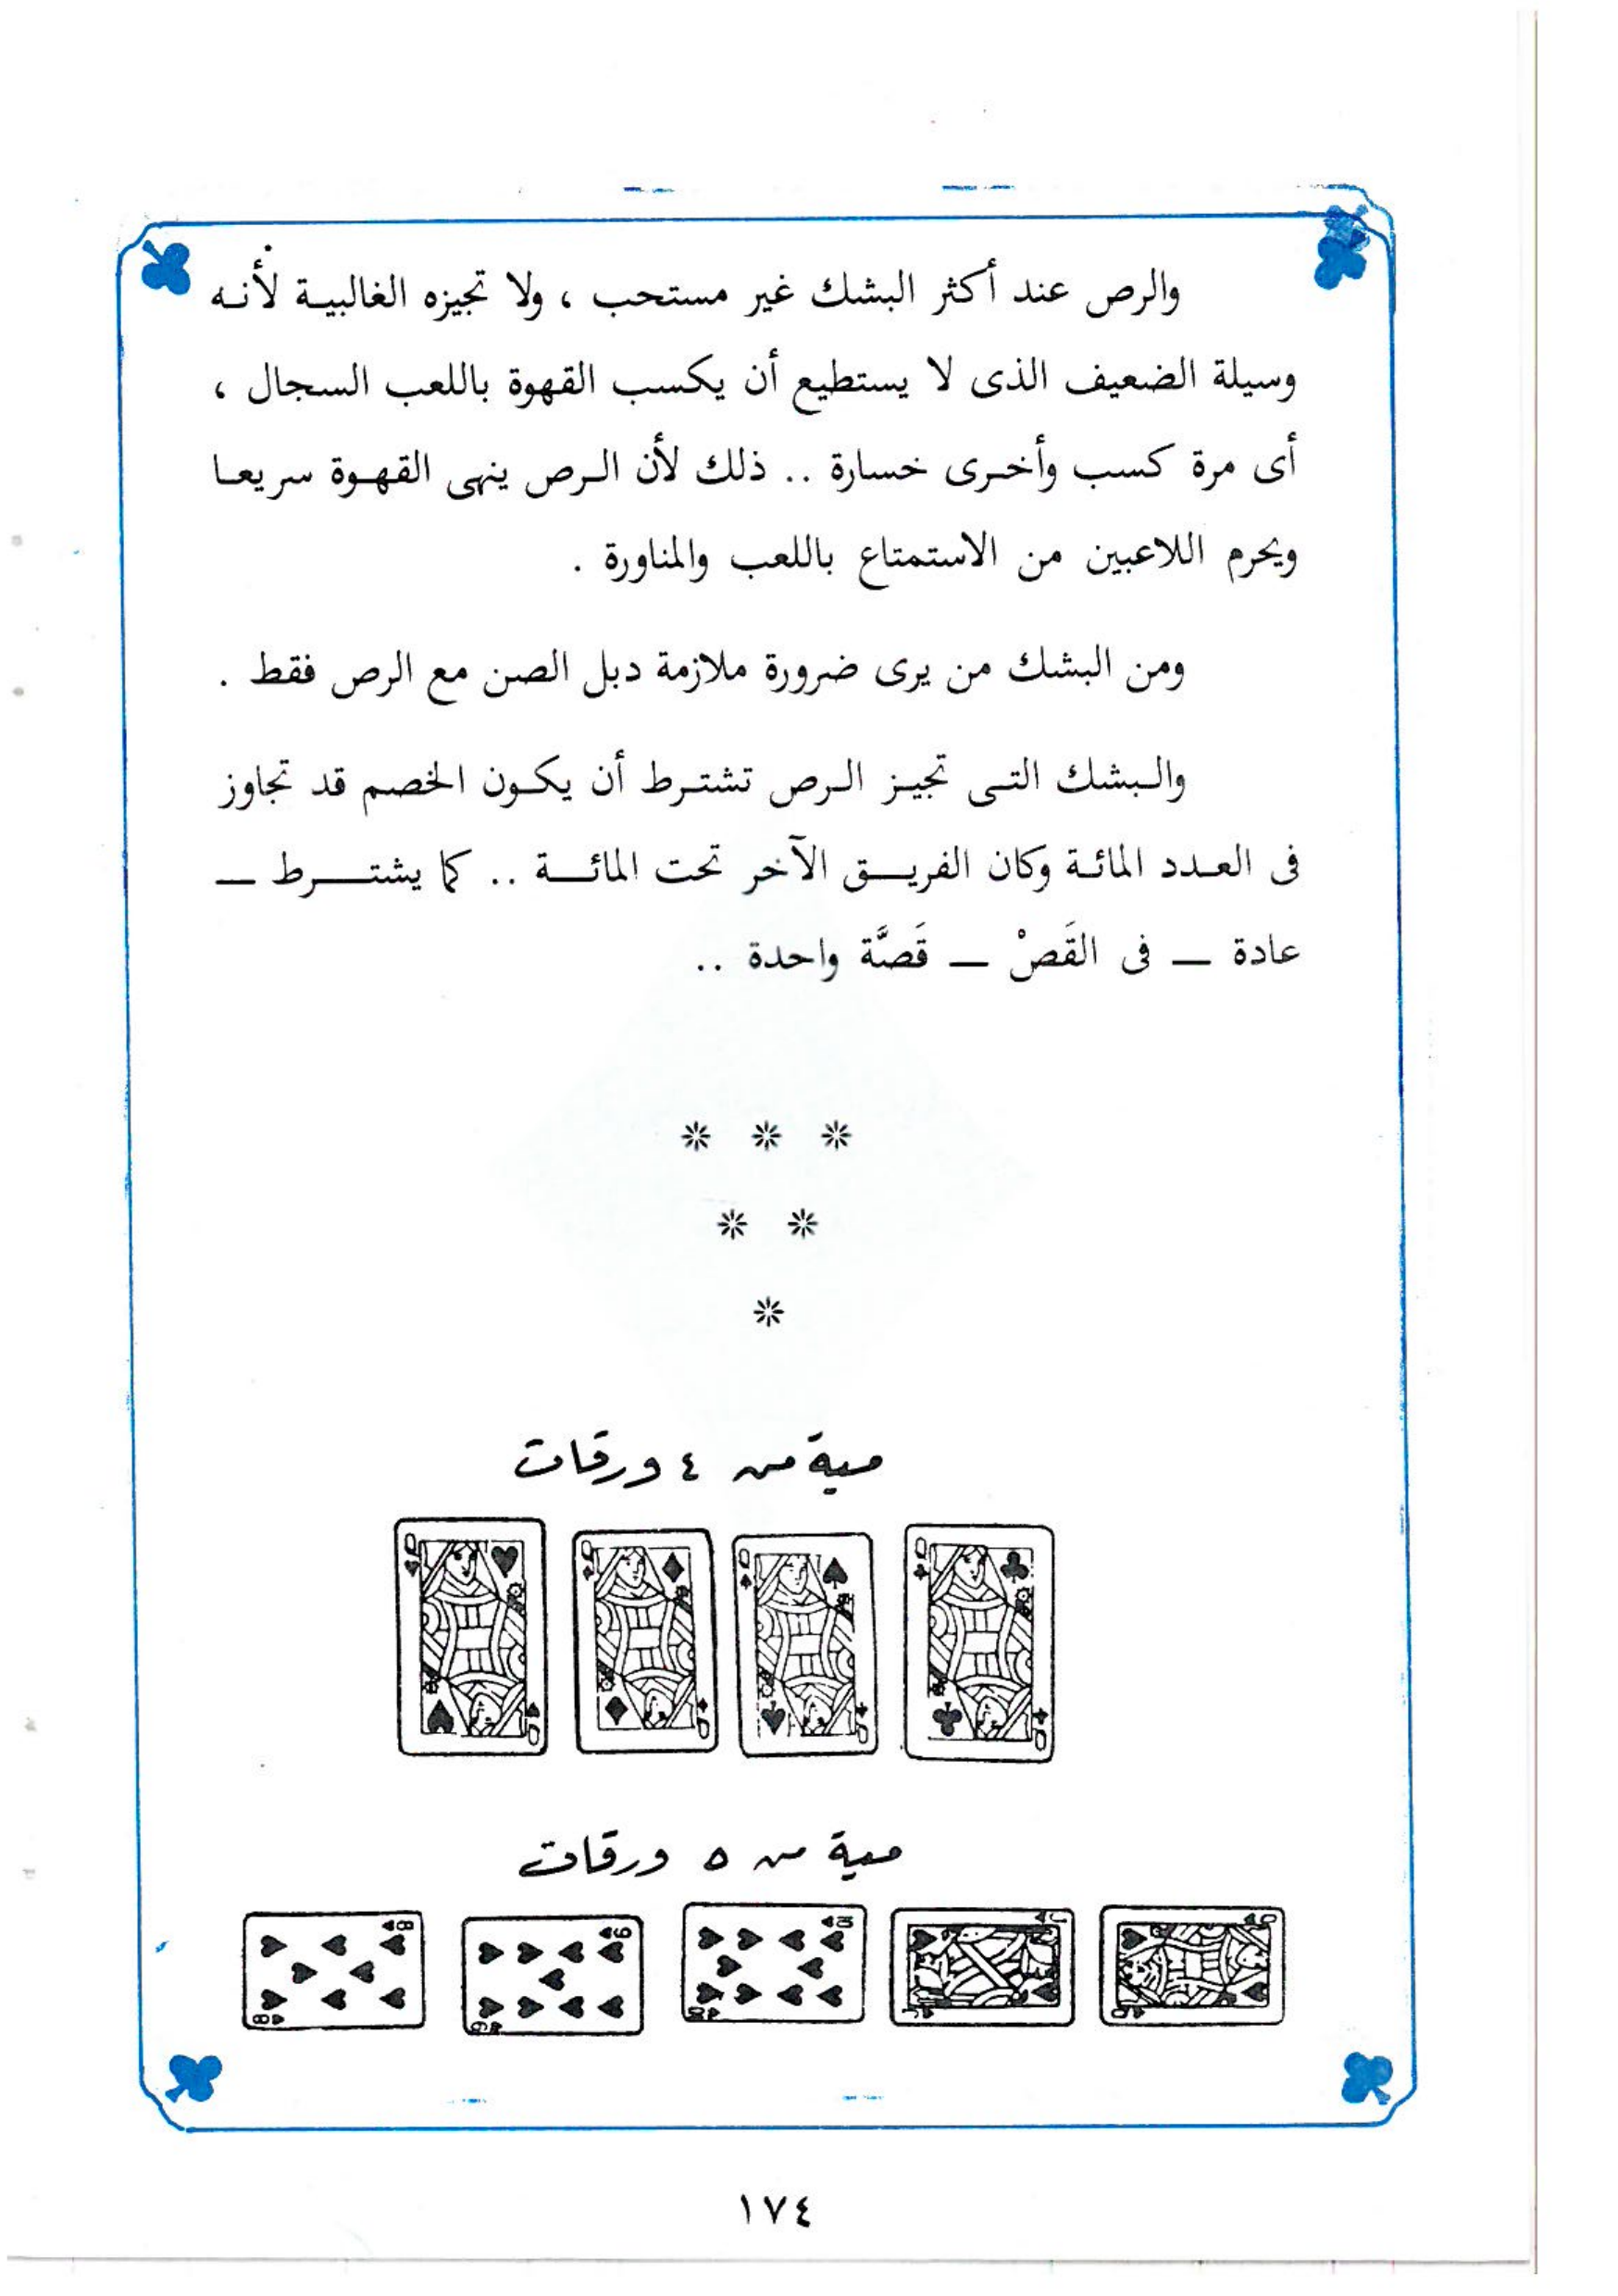 والرص عند أكثر البشك غير مستحب ، ولا تجيزه الغالبية لأنه
وسيلة الضعيف الذى لا يستطيع أن يكسب القهوة باللعب السجال ،
أى مرة كسب وأخرى خسارة .. ذلك لأن الرص ينهى القهوة سريعا
ويحرم اللاعبين من الاستمتاع باللعب والمناورة .
ومن البشك من يرى ضرورة ملازمة دبل الصن مع الرص فقط .
والبشك التى تجيز الرص تشترط أن يكون الخصم قد تجاوز
فى العدد المائة وكان الفريق الآخر تحت المائة .. كما يشترط ــ
عادة ــ فى القَصْ ــ قَصَّة واحدة ..
* * *
* *
*
مية من ٤ ورقات
Q Q Q Q
Q Q Q Q
مية من ٥ ورقات
8 9 10 J Q
8 9 10 J Q
١٧٤